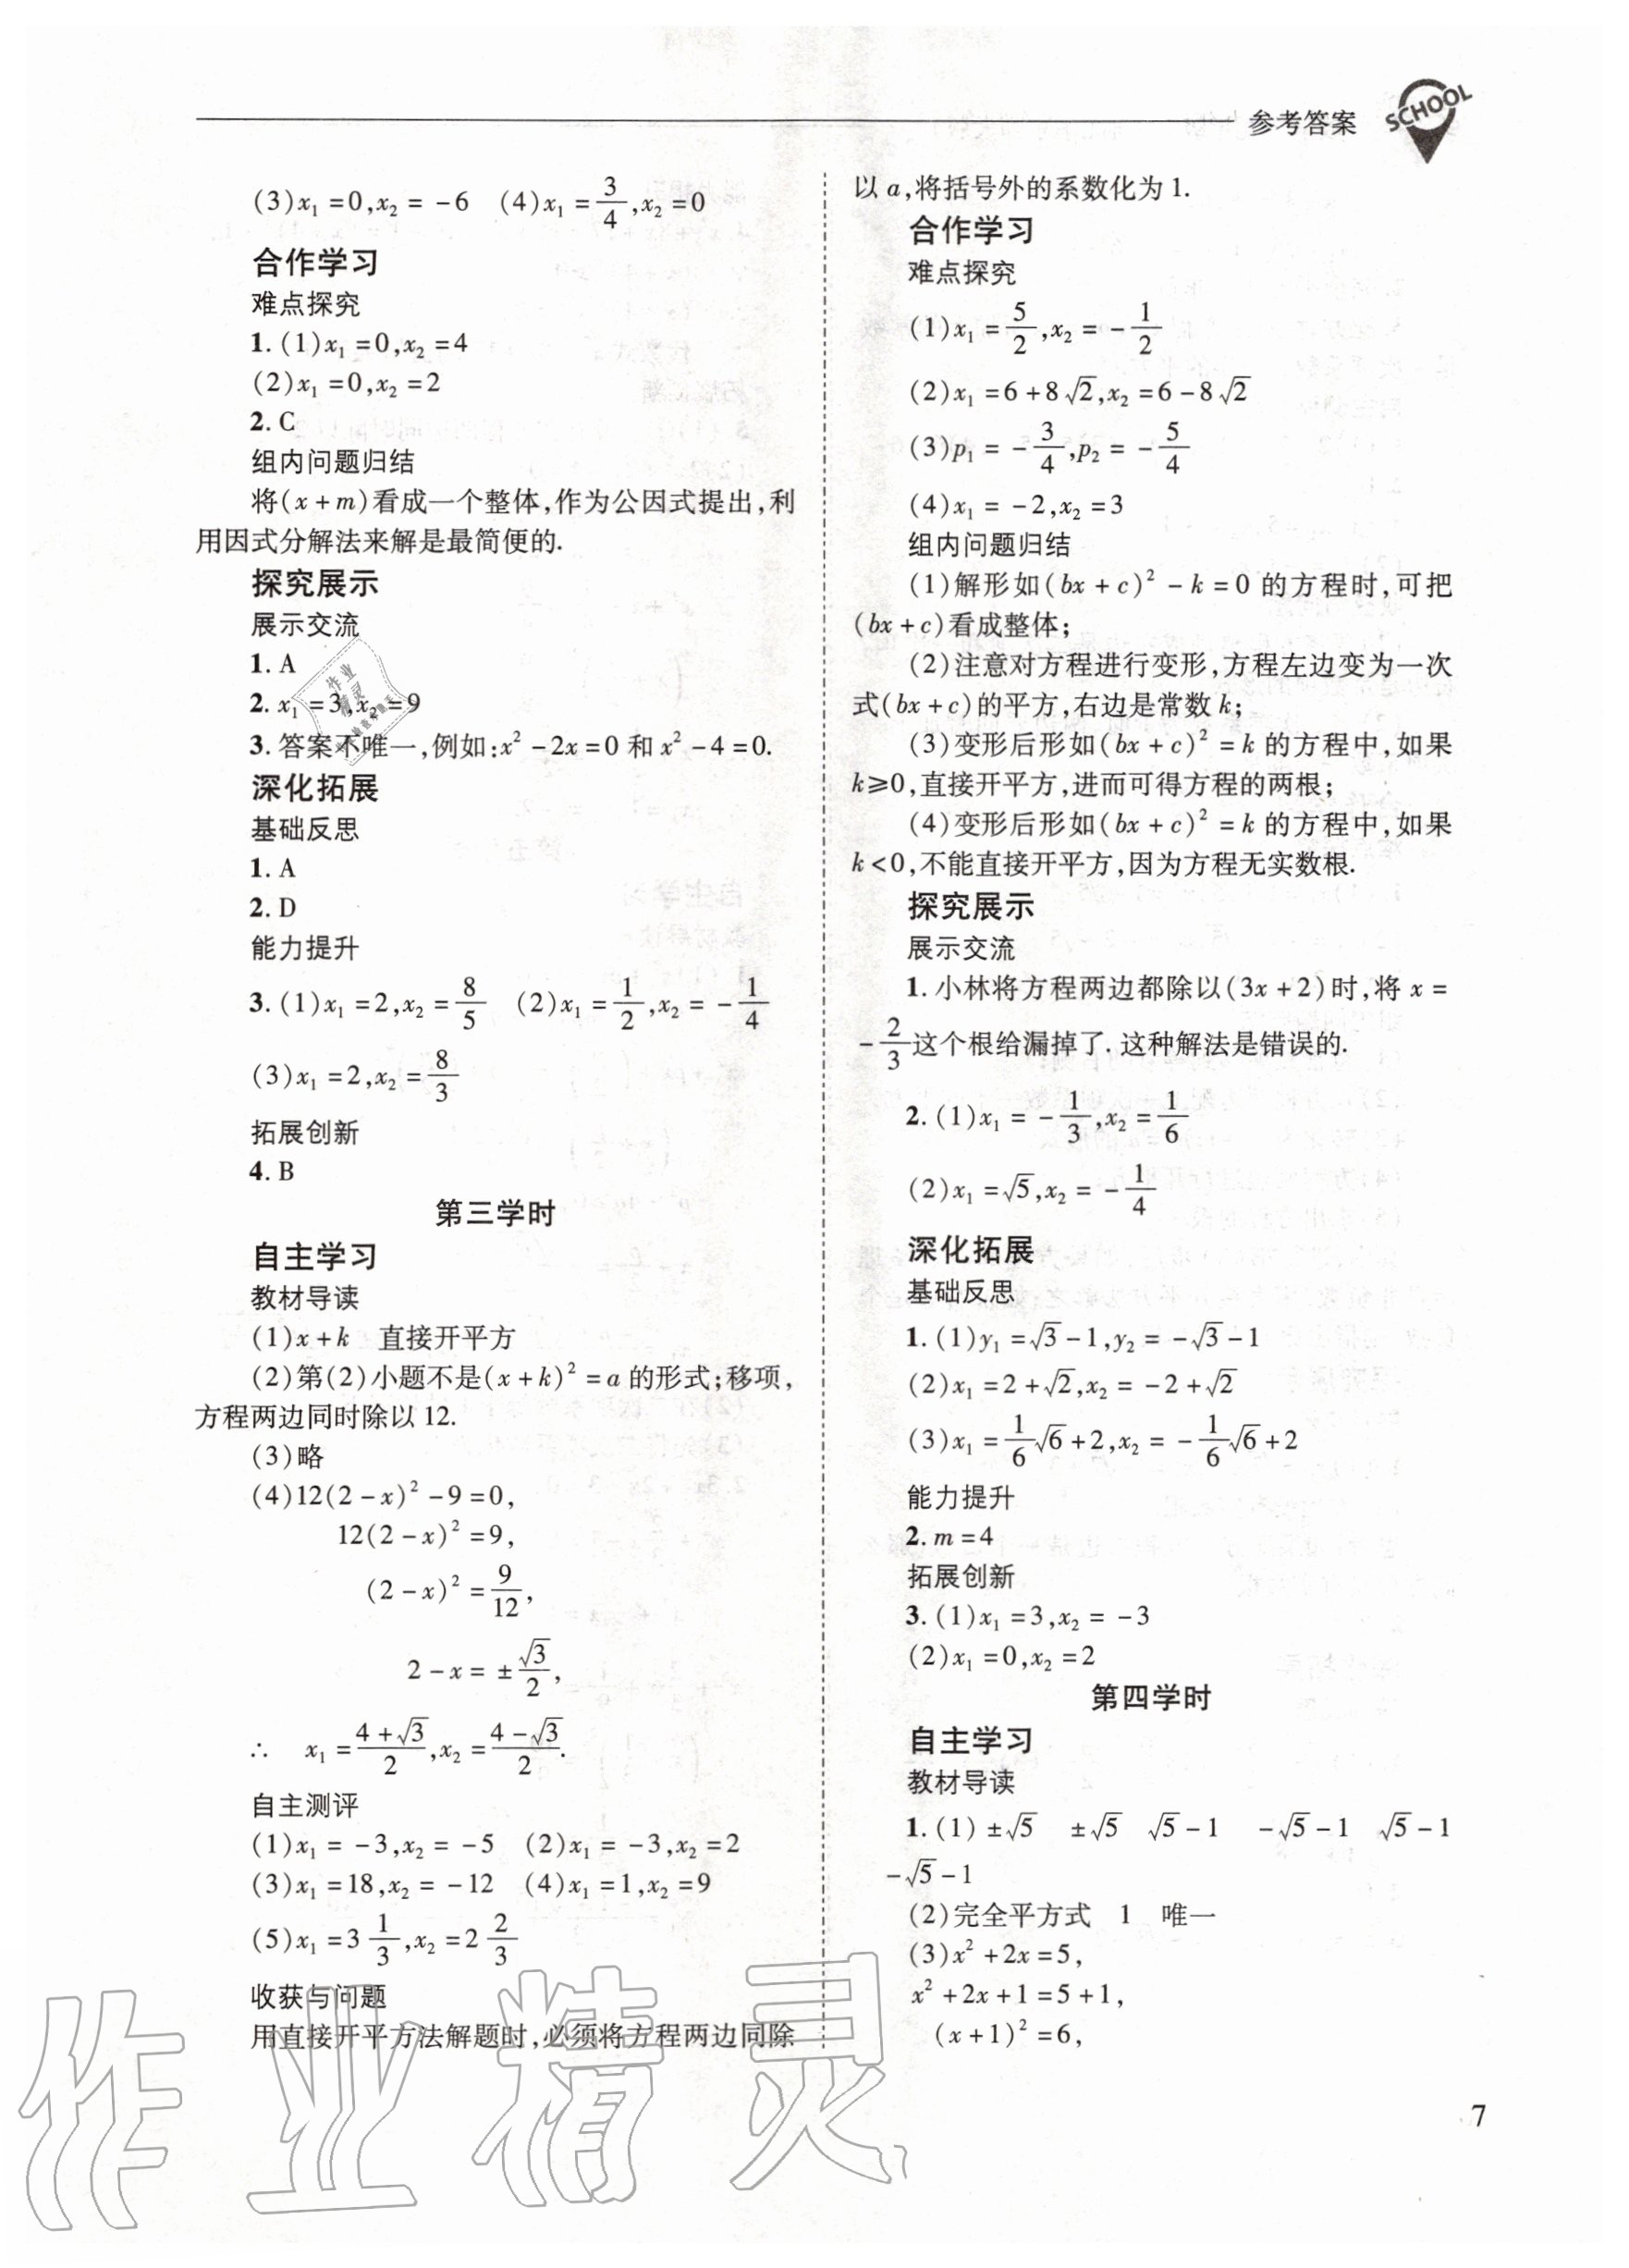 参考答案
SCHOOL
(3)x₁=0,x₂=-6 (4)x₁=3/4,x₂=0
合作学习
难点探究
1.(1)x₁=0,x₂=4
(2)x₁=0,x₂=2
2.C
组内问题归结
将(x+m)看成一个整体,作为公因式提出,利
用因式分解法来解是最简便的.
探究展示
展示交流
1.A
2.x₁=3,x₂=9
3.答案不唯一,例如:x²-2x=0和x²-4=0.
深化拓展
基础反思
1.A
2.D
能力提升
3.(1)x₁=2,x₂=8/5 (2)x₁=1/2,x₂=-1/4
(3)x₁=2,x₂=8/3
拓展创新
4.B
第三学时
自主学习
教材导读
(1)x+k 直接开平方
(2)第(2)小题不是(x+k)²=a的形式;移项,
方程两边同时除以12.
(3)略
(4)12(2-x)²-9=0,
12(2-x)²=9,
(2-x)²=9/12,
2-x=±√3/2,
∴ x₁=(4+√3)/2,x₂=(4-√3)/2.
自主测评
(1)x₁=-3,x₂=-5 (2)x₁=-3,x₂=2
(3)x₁=18,x₂=-12 (4)x₁=1,x₂=9
(5)x₁=3 1/3,x₂=2 2/3
收获与问题
用直接开平方法解题时,必须将方程两边同除
以a,将括号外的系数化为1.
合作学习
难点探究
(1)x₁=5/2,x₂=-1/2
(2)x₁=6+8√2,x₂=6-8√2
(3)p₁=-3/4,p₂=-5/4
(4)x₁=-2,x₂=3
组内问题归结
(1)解形如(bx+c)²-k=0的方程时,可把
(bx+c)看成整体;
(2)注意对方程进行变形,方程左边变为一次
式(bx+c)的平方,右边是常数k;
(3)变形后形如(bx+c)²=k的方程中,如果
k≥0,直接开平方,进而可得方程的两根;
(4)变形后形如(bx+c)²=k的方程中,如果
k<0,不能直接开平方,因为方程无实数根.
探究展示
展示交流
1.小林将方程两边都除以(3x+2)时,将x=
-2/3这个根给漏掉了.这种解法是错误的.
2.(1)x₁=-1/3,x₂=1/6
(2)x₁=√5,x₂=-1/4
深化拓展
基础反思
1.(1)y₁=√3-1,y₂=-√3-1
(2)x₁=2+√2,x₂=-2+√2
(3)x₁=1/6√6+2,x₂=-1/6√6+2
能力提升
2.m=4
拓展创新
3.(1)x₁=3,x₂=-3
(2)x₁=0,x₂=2
第四学时
自主学习
教材导读
1.(1)±√5 ±√5 √5-1 -√5-1 √5-1
-√5-1
(2)完全平方式 1 唯一
(3)x²+2x=5,
x²+2x+1=5+1,
(x+1)²=6,
7
作业精灵